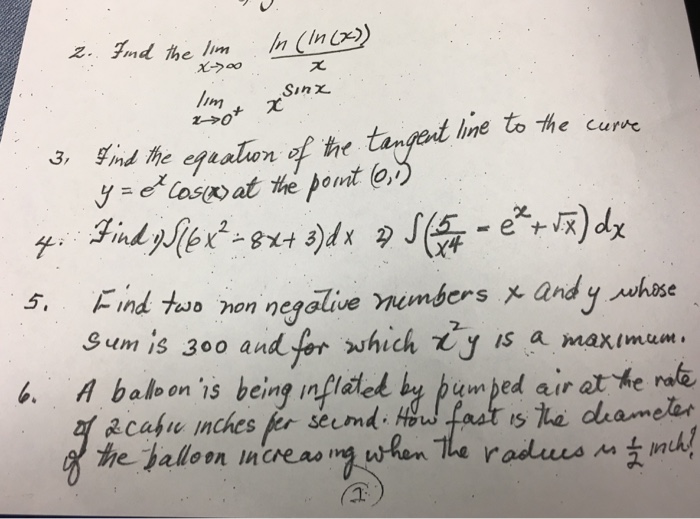 2. Find the lim x→∞ ln(ln(x))/x
lim x→0⁺ x^sinx
3, Find the equation of the tangent line to the curve
y = e^x cos(x) at the point (0,1)
4. Find 1) ∫(6x² - 8x + 3)dx 2) ∫(5/x⁴ - e^x + √x) dx
5. Find two non negative numbers x and y whose
sum is 300 and for which x²y is a maximum.
6. A balloon is being inflated by pumped air at the rate
of 2 cubic inches per second. How fast is the diameter
of the balloon increasing when the radius is 1/2 inch?
2